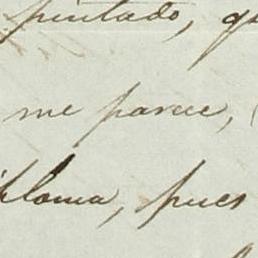 pintado, qu
me parece, (
iploma, pues